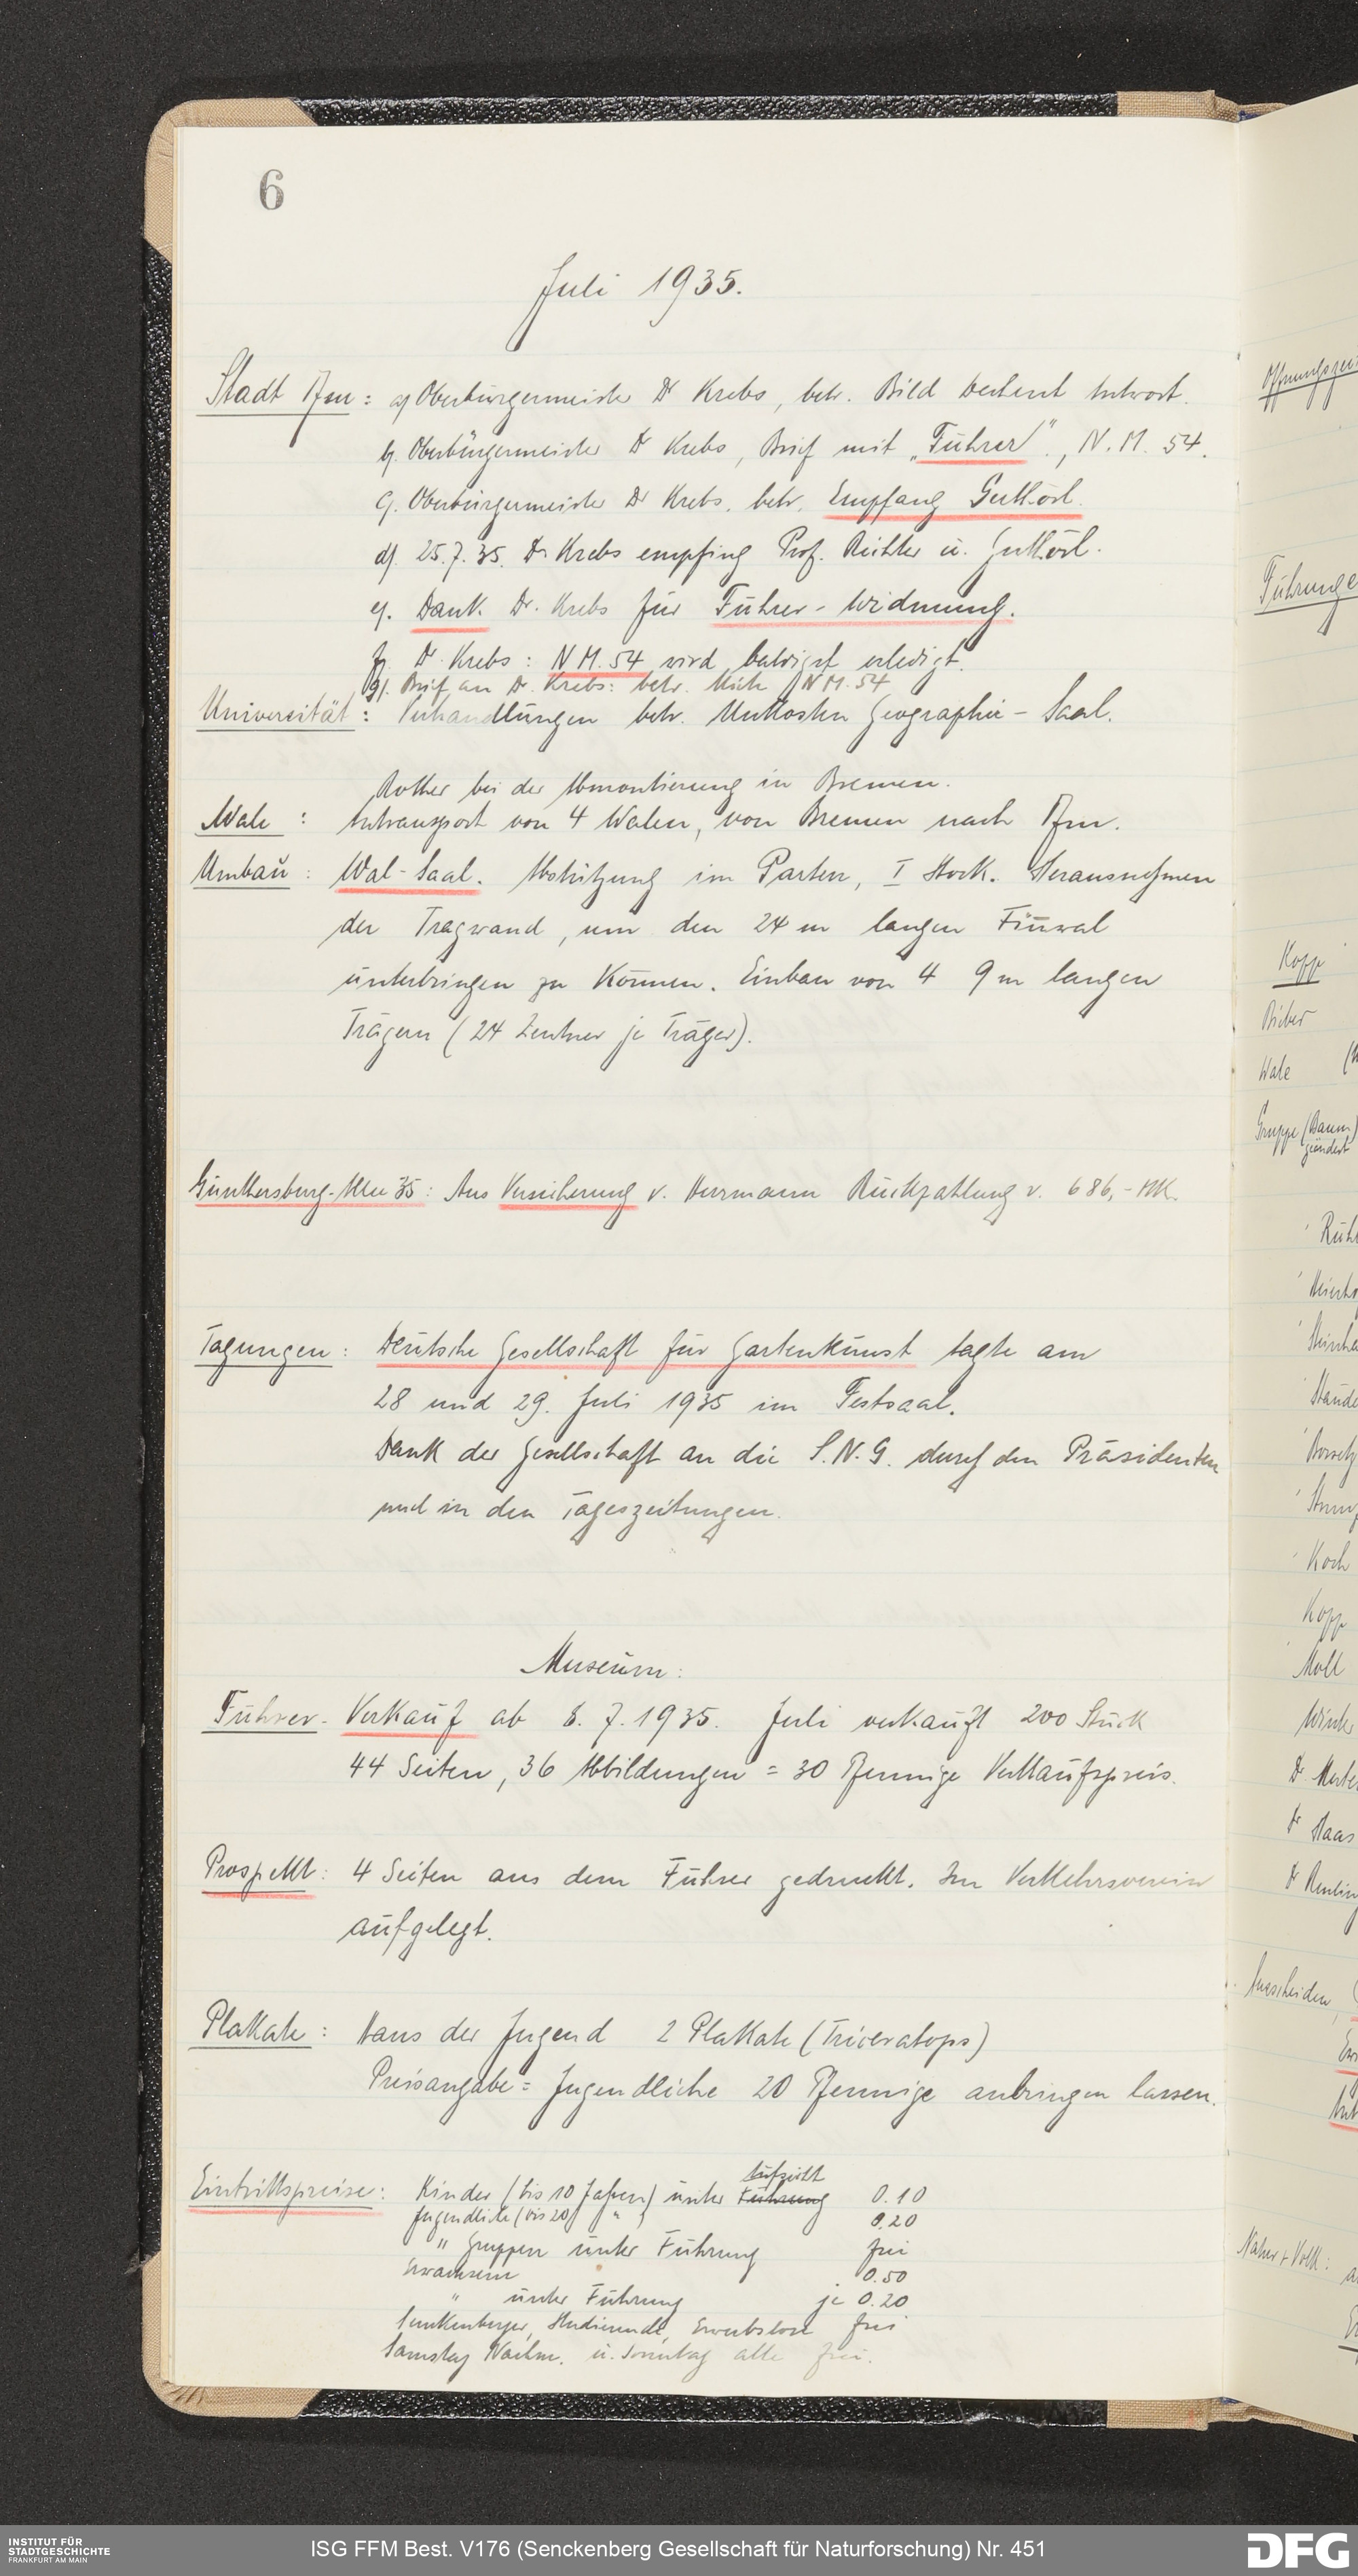 6
Juli 1935.
Stadt Ffm: a) Oberbürgermeister Dr Krebs, betr. Bild Dechent Antwort.
b). Oberbürgermeister Dr Krebs, Brief mit „Führer", N.M. 54.
c). Oberbürgermeister Dr Krebs. betr. Empfang Guthörl.
d). 25.7.35. Dr Krebs empfing Prof. Richter u. Guthörl.
e). Dank Dr. Krebs für Führer-Widmung.
f). Dr. Krebs: N.M. 54 wird baldigst erledigt.
g). Brief an Dr. Krebs: betr. N M. 54
Universität: Verhandlungen betr. Unkosten Geographie-Saal.
Rother bei der Abmontierung in Bremen.
Wale: Antransport von 4 Walen, von Bremen nach Ffm.
Umbau: Wal-Saal. Abstützung im Parterr, I Stock. Herausnehmen
der Tragwand, um den 24 m langen Finwal
unterbringen zu können. Einbau von 4 9 m langen
Trägern (24 Zentner je Träger).
Günthersburg-Allee 35: Aus Versicherung v. Herrmann Rückzahlung v. 686,- RM.
Tagungen: Deutsche Gesellschaft für Gartenkunst tagte am
28 und 29. Juli 1935 im Festsaal.
Dank der Gesellschaft an die S.N.G. durch den Präsidenten
und in den Tageszeitungen.
Museum:
Führer-Verkauf ab 8. 7. 1935. Juli verkauft 200 Stück
44 Seiten, 36 Abbildungen = 30 Pfennige Verkaufspreis.
Prospekt: 4 Seiten aus dem Führer gedruckt. Im Verkehrsverein
aufgelegt.
Plakate: Haus der Jugend 2 Plakate (Triceratops)
Preisangabe = Jugendliche 20 Pfennige anbringen lassen.
Aufsicht
Eintrittspreise: Kinder (bis 10 Jahren) unter Führung 0.10
Jugendliche (bis 20) " 0.20
" Gruppen unter Führung frei
Erwachsene 0.50
" unter Führung je 0.20
Senckenberger, Studierende, Erwerbslose frei
Samstag Nachm. u. Sonntag alle frei.
Kopp
Biber
Wale
Gruppe (Baum)
geändert
Koch
Kopp
Moll
Ausscheiden
Natur + Volk:
INSTITUT FÜR
STADTGESCHICHTE
FRANKFURT AM MAIN
ISG FFM Best. V176 (Senckenberg Gesellschaft für Naturforschung) Nr. 451
DFG